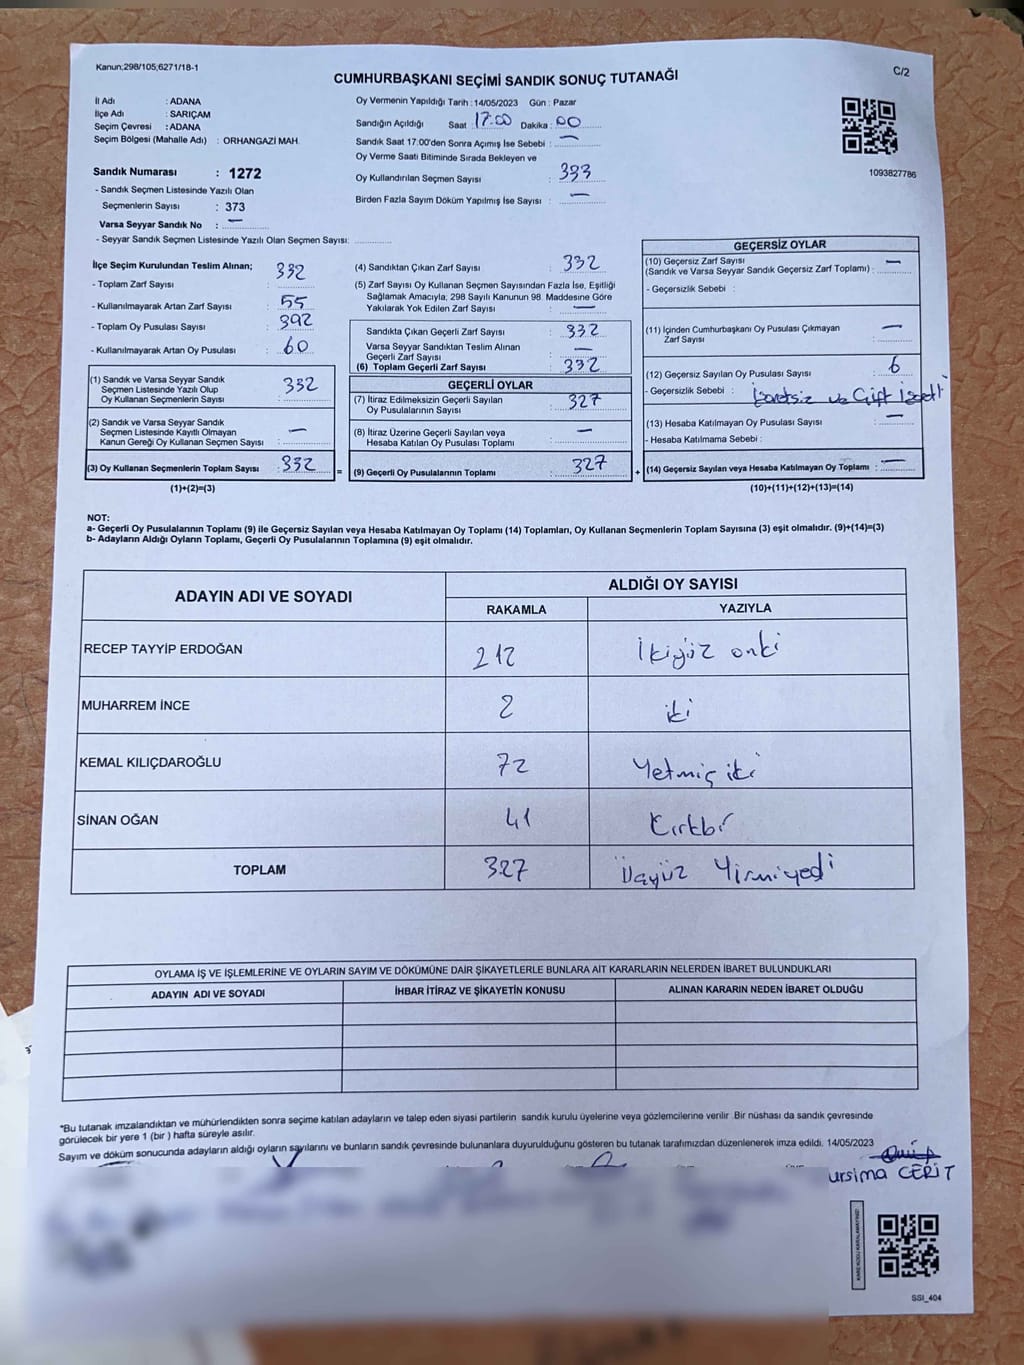 Kanun:298/105,6271/18-1
CUMHURBAŞKANI SEÇİMİ SANDIK SONUÇ TUTANAĞI
C/2
İl Adı : ADANA
İlçe Adı : SARIÇAM
Seçim Çevresi : ADANA
Seçim Bölgesi (Mahalle Adı) : ORHANGAZİ MAH.
Oy Vermenin Yapıldığı Tarih : 14/05/2023 Gün : Pazar
Sandığın Açıldığı Saat : 17:00 Dakika : 00
Sandık Saat 17:00'den Sonra Açımış İse Sebebi : —
Oy Verme Saati Bitiminde Sırada Bekleyen ve
Oy Kullandırılan Seçmen Sayısı : 333
Birden Fazla Sayım Döküm Yapılmış İse Sayısı : —
1093827786
Sandık Numarası : 1272
- Sandık Seçmen Listesinde Yazılı Olan
Seçmenlerin Sayısı : 373
Varsa Seyyar Sandık No : —
- Seyyar Sandık Seçmen Listesinde Yazılı Olan Seçmen Sayısı: ..............
İlçe Seçim Kurulundan Teslim Alınan;
- Toplam Zarf Sayısı : 332
- Kullanılmayarak Artan Zarf Sayısı : 55
- Toplam Oy Pusulası Sayısı : 392
- Kullanılmayarak Artan Oy Pusulası : 60
(1) Sandık ve Varsa Seyyar Sandık
Seçmen Listesinde Yazılı Olup
Oy Kullanan Seçmenlerin Sayısı : 332
(2) Sandık ve Varsa Seyyar Sandık
Seçmen Listesinde Kayıtlı Olmayan
Kanun Gereği Oy Kullanan Seçmen Sayısı : —
(3) Oy Kullanan Seçmenlerin Toplam Sayısı : 332
(1)+(2)=(3)
(4) Sandıktan Çıkan Zarf Sayısı : 332
(5) Zarf Sayısı Oy Kullanan Seçmen Sayısından Fazla İse, Eşitliği
Sağlamak Amacıyla, 298 Sayılı Kanunun 98. Maddesine Göre
Yakılarak Yok Edilen Zarf Sayısı : —
Sandıkta Çıkan Geçerli Zarf Sayısı : 332
Varsa Seyyar Sandıktan Teslim Alınan
Geçerli Zarf Sayısı : —
(6) Toplam Geçerli Zarf Sayısı : 332
GEÇERLİ OYLAR
(7) İtiraz Edilmeksizin Geçerli Sayılan
Oy Pusulalarının Sayısı : 327
(8) İtiraz Üzerine Geçerli Sayılan veya
Hesaba Katılan Oy Pusulası Toplamı : —
=
(9) Geçerli Oy Pusulalarının Toplamı : 327
GEÇERSİZ OYLAR
(10) Geçersiz Zarf Sayısı
(Sandık ve Varsa Seyyar Sandık Geçersiz Zarf Toplamı) : —
- Geçersizlik Sebebi :
(11) İçinden Cumhurbaşkanı Oy Pusulası Çıkmayan
Zarf Sayısı : —
(12) Geçersiz Sayılan Oy Pusulası Sayısı : 6
- Geçersizlik Sebebi : İşaretsiz ve Çift İşaretli
(13) Hesaba Katılmayan Oy Pusulası Sayısı : —
- Hesaba Katılmama Sebebi :
+
(14) Geçersiz Sayılan veya Hesaba Katılmayan Oy Toplamı : —
(10)+(11)+(12)+(13)=(14)
NOT:
a- Geçerli Oy Pusulalarının Toplamı (9) ile Geçersiz Sayılan veya Hesaba Katılmayan Oy Toplamı (14) Toplamları, Oy Kullanan Seçmenlerin Toplam Sayısına (3) eşit olmalıdır. (9)+(14)=(3)
b- Adayların Aldığı Oyların Toplamı, Geçerli Oy Pusulalarının Toplamına (9) eşit olmalıdır.
ADAYIN ADI VE SOYADI
ALDIĞI OY SAYISI
RAKAMLA
YAZIYLA
RECEP TAYYİP ERDOĞAN 212 İkiyüz oniki
MUHARREM İNCE 2 iki
KEMAL KILIÇDAROĞLU 72 Yetmiş iki
SİNAN OĞAN 41 Kırkbir
TOPLAM 327 Üçyüz Yirmiyedi
OYLAMA İŞ VE İŞLEMLERİNE VE OYLARIN SAYIM VE DÖKÜMÜNE DAİR ŞİKAYETLERLE BUNLARA AİT KARARLARIN NELERDEN İBARET BULUNDUKLARI
ADAYIN ADI VE SOYADI
İHBAR İTİRAZ VE ŞİKAYETİN KONUSU
ALINAN KARARIN NEDEN İBARET OLDUĞU
*Bu tutanak imzalandıktan ve mühürlendikten sonra seçime katılan adayların ve talep eden siyasi partilerin sandık kurulu üyelerine veya gözlemcilerine verilir .Bir nüshası da sandık çevresinde
görülecek bir yere 1 (bir ) hafta süreyle asılır.
Sayım ve döküm sonucunda adayların aldığı oyların sayılarını ve bunların sandık çevresinde bulunanlara duyurulduğunu gösteren bu tutanak tarafımızdan düzenlenerek imza edildi. 14/05/2023
ursima CERİT
SSI_404